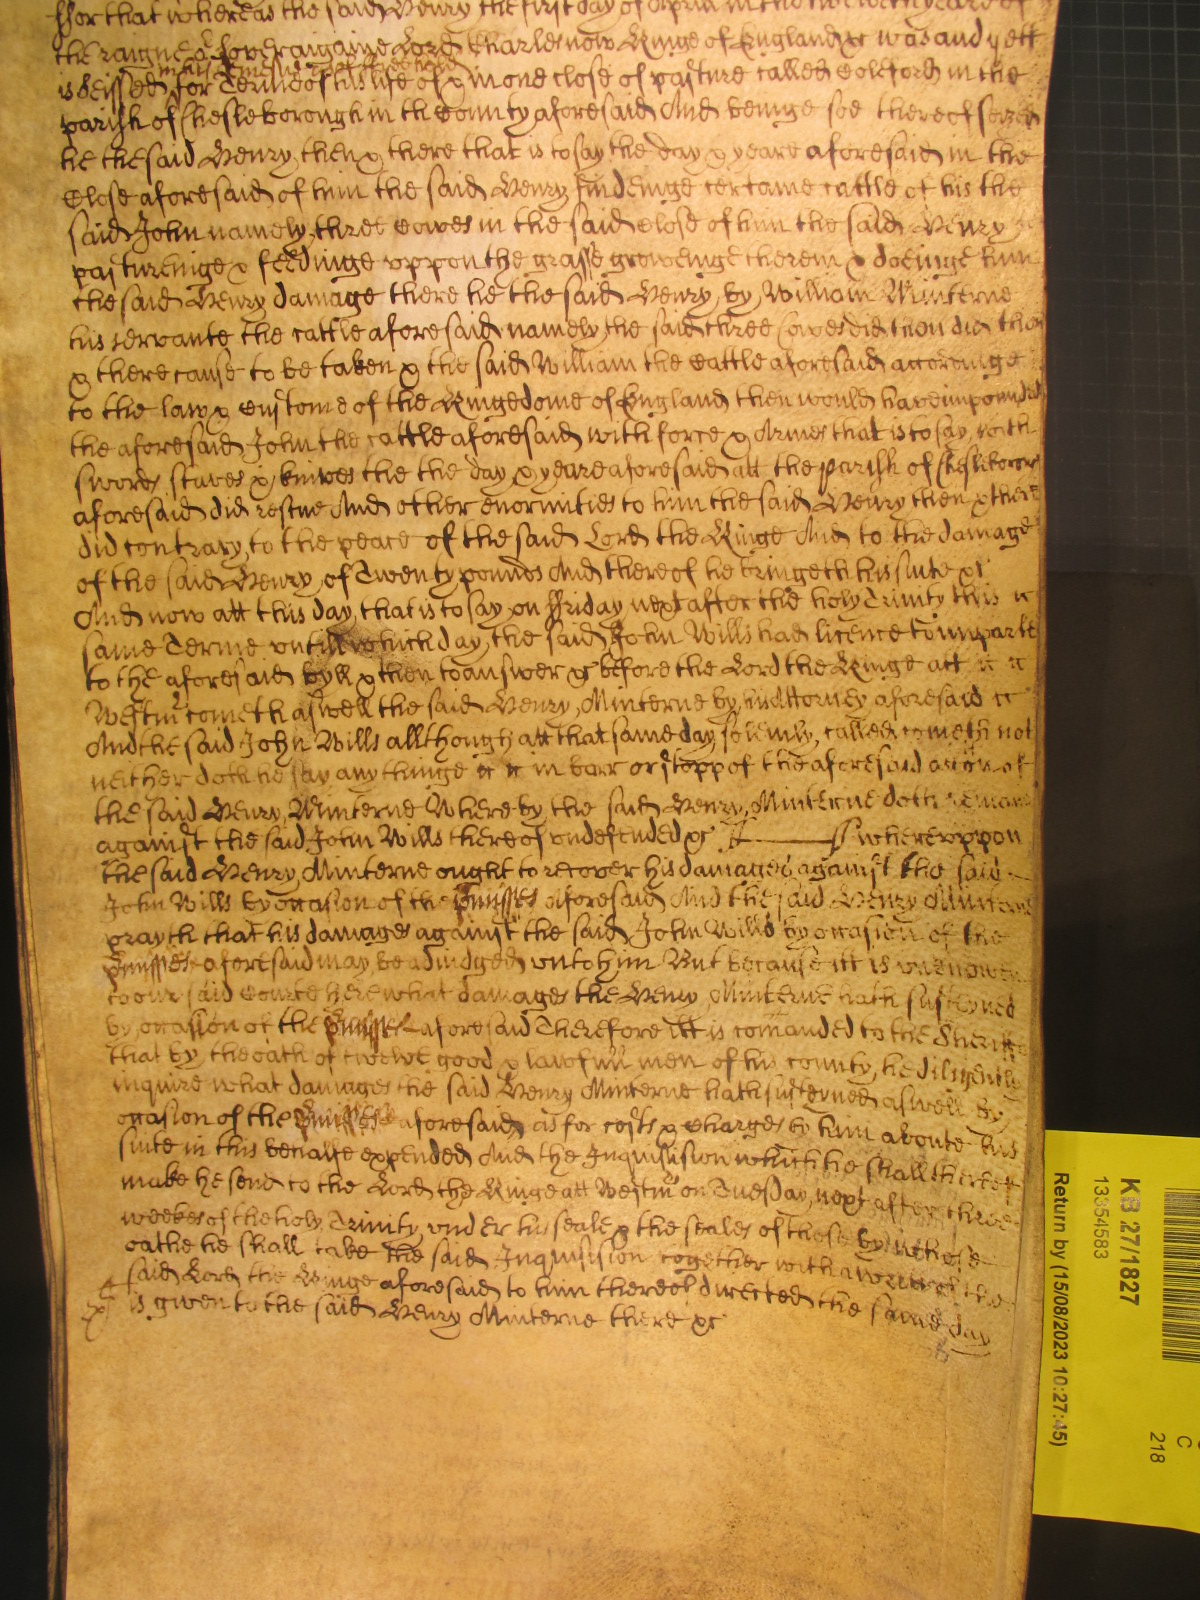 ffor that whereas the said Henry the first day of Aprill in the twelveth yeare of
the raigne of or soveraigne Lord Charles now Kinge of England &c was and yett
in his demesne as of freehold
is seissed for Terme of his life of & in one close of pasture called Colford in the
parish of Hesleborough in the County aforesaid And beinge soe thereof seized
he the said Henry then & there that is to say the day & yeare aforesaid in the
Close aforesaid of him the said Henry findeinge certaine cattle of his the
said John namely three Cowes in the said Close of him the said Henry
pastureinge & feedinge uppon the grasse groweinge therein & doeinge him
the said Henry damage there he the said Henry by William Minterne
his servante the cattle aforesaid namely the said three Cowes did then did then
& there cause to be taken & the said William the Cattle aforesaid accordinge
to the law & Custome of the Kingedome of England then would have impounded
the aforesaid John the cattle aforesaid with force & Armes that is to say with
swords staves & knives the the day & yeare aforesaid att the parish of Hesleborow
aforesaid did rescue And other enormities to him the said Henry then & there
did contrary to the peace of the said Lord the Kinge And to the damage
of the said Henry of Twenty pounds And thereof he bringeth his suite &c
And now att this day that is to say on ffriday next after the holy Trinity this
same Terme untill which day the said John Wills had licence to imparle
to the aforesaid byll & then to answer &c before the Lord the Kinge att
Westmr cometh aswell the said Henry Minterne by his Attorney aforesaid
And the said John Wills allthough att that same day solemly called cometh not
neither doth he say any thinge in barr or stopp of the aforesaid accon of
the said Henry Minterne Whereby the said Henry Minterne doth remaine
against the said John Wills thereof undefended &c Whereuppon
the said Henry Minterne ought to recover his damages against the said
John Wills by occasion of the pmisses aforesaid And the said Henry Minterne
prayth that his damages against the said John Wills by occasion of the
pmisses aforesaid may be adiudged unto him But because itt is unknowen
to our said Courte here what damages the Henry Minterne hath susteyned
by occasion of the pmisses aforesaid Therefore itt is comanded to the Sheriffe
that by the oath of twelve good & lawfull men of his county he diligently
inquire what damages the said Henry Minterne hath susteyned aswell by
occasion of the pmisses aforesaid as for costs & Charges by him aboute his
suite in this behalfe expended And the Inquisision which he shall thereof
make he send to the Lord the Kinge att Westmr on Tuesday next after three
weekes of the holy Trinity under his seale & the seales of those by whose
oathe he shall take the said Inquisision together with a writt of the
said Lord the Kinge aforesaid to him thereof directed the same day
is given to the said Henry Minterne there &c
KB 27/1827
13354583
Return by (15/08/2023 10:27:45)
C
218